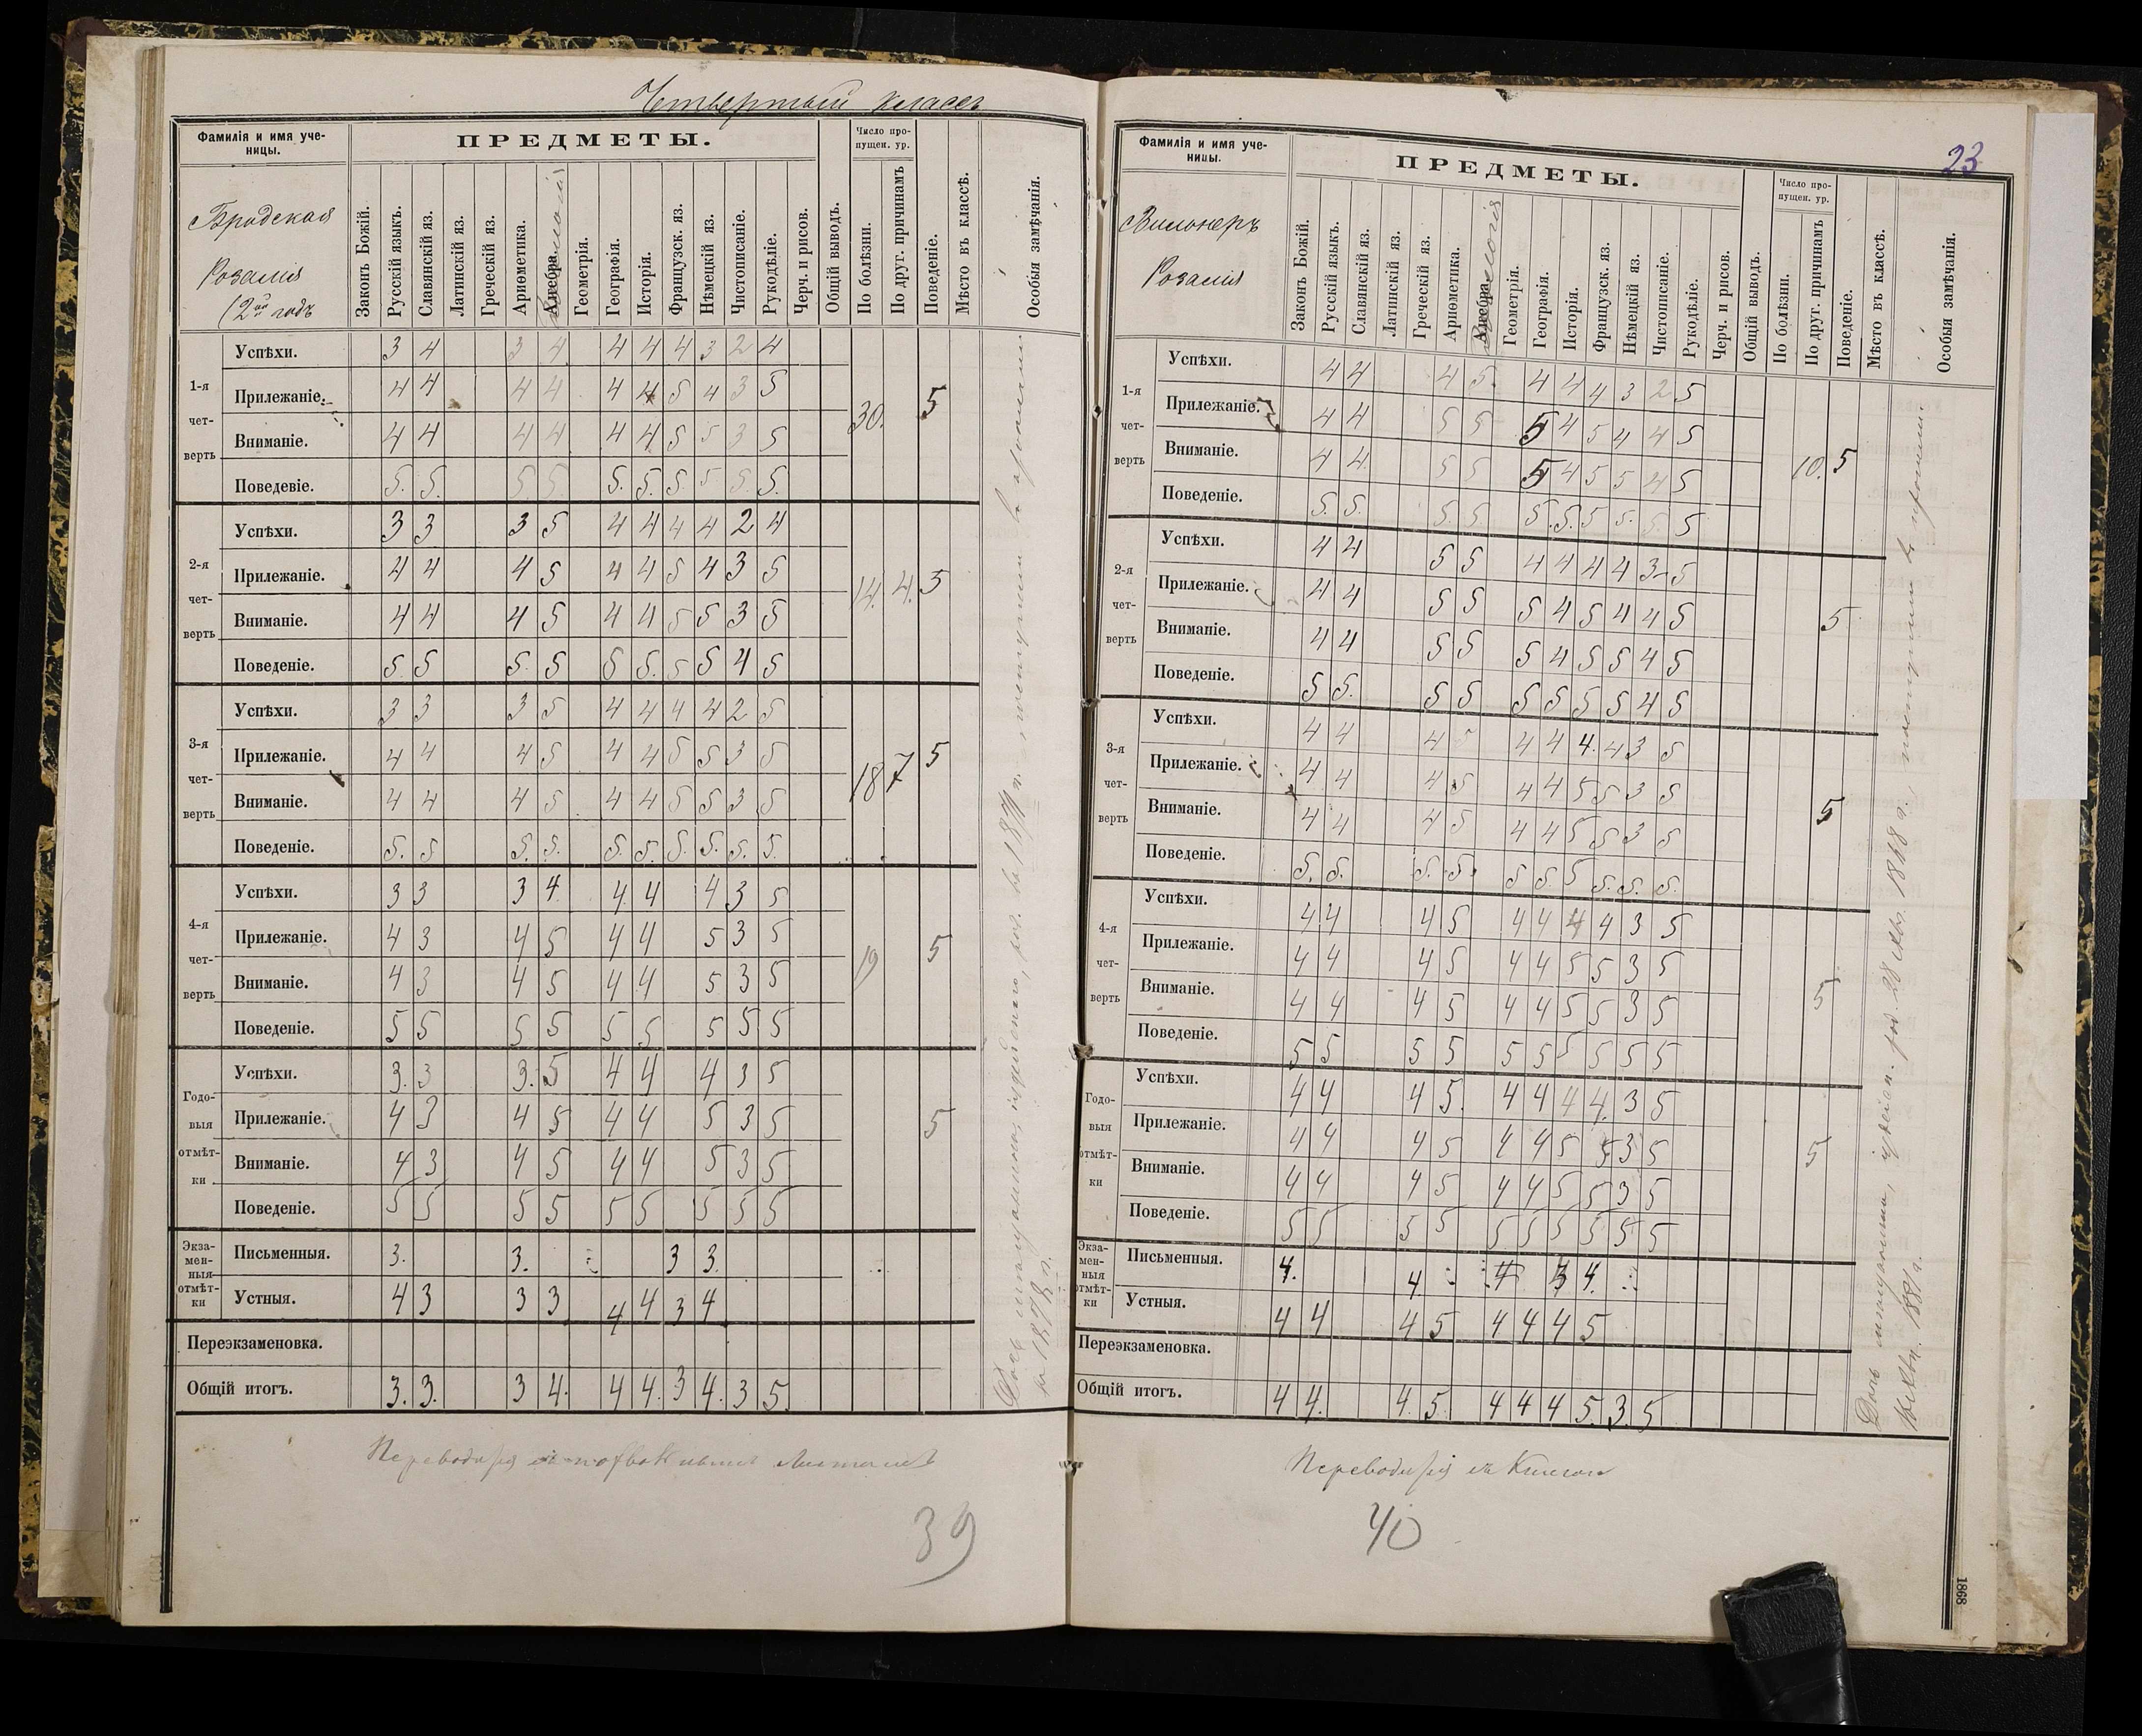 Четвертый классъ
Фамилія и имя уче-
ницы.
ПРЕДМЕТЫ.
Число про-
пущен. ур.
Бродская
Розалія
(2ой годъ
Законъ Божій.
Русскій языкъ.
Славянскій яз.
Латинскій яз.
Греческій яз.
Ариѳметика.
Алгебра.
Геометрія.
Географія.
Исторія.
Французск. яз.
Нѣмецкій яз.
Чистописаніе.
Рукодѣліе.
Черч. и рисов.
Общій выводъ.
По болѣзни.
По друг. причинамъ
Поведеніе.
Мѣсто въ классѣ.
Особыя замѣчанія.
1-я четверть
Успѣхи. 3 4 3 4 4 4 4 3 2 4
Прилежаніе. 4 4 4 4 4 4 5 4 3 5
30. 5
Вниманіе. 4 4 4 4 4 4 5 5 3 5
Поведевіе. 5. 5. 5 5 5. 5. 5 5 5. 5.
2-я четверть
Успѣхи. 3 3 3 5 4 4 4 4 2 4
Прилежаніе. 4 4 4 5 4 4 5 4 3 5
14. 4. 5
Вниманіе. 4 4 4 5 4 4 5 5 3 5
Поведеніе. 5 5 5. 5 5 5. 5 5 4 5
3-я четверть
Успѣхи. 3 3 3 5 4 4 4 4 2 5
Прилежаніе. 4 4 4 5 4 4 5 5 3 5
18 7 5
Вниманіе. 4 4 4 5 4 4 5 5 3 5
Поведеніе. 5. 5 5. 5. 5. 5. 5. 5. 5. 5.
4-я четверть
Успѣхи. 3 3 3 4. 4 4 4 3 5
Прилежаніе. 4 3 4 5 4 4 5 3 5
19 5
Вниманіе. 4 3 4 5 4 4 5 3 5
Поведеніе. 5 5 5 5 5 5 5 5 5
Годовыя отмѣтки
Успѣхи. 3. 3 3. 5 4 4 4 3 5
Прилежаніе. 4 3 4 5 4 4 5 3 5
5
Вниманіе. 4 3 4 5 4 4 5 3 5
Поведеніе. 5 5 5 5 5 5 5 5 5
Экзаменныя отмѣтки
Письменныя. 3. 3. 3 3.
Устныя. 4 3 3 3 4 4 3 4
Переэкзаменовка.
Общій итогъ. 3. 3. 3 4. 4 4. 3 4. 3 5.
39
23
Фамилія и имя уче-
ницы.
ПРЕДМЕТЫ.
Число про-
пущен. ур.
Вилонеръ
Розалія
Законъ Божій.
Русскій языкъ.
Славянскій яз.
Латинскій яз.
Греческій яз.
Ариѳметика.
Алгебра.
Геометрія.
Географія.
Исторія.
Французск. яз.
Нѣмецкій яз.
Чистописаніе.
Рукодѣліе.
Черч. и рисов.
Общій выводъ.
По болѣзни.
По друг. причинамъ
Поведеніе.
Мѣсто въ классѣ.
Особыя замѣчанія.
1-я четверть
Успѣхи. 4 4 4 5. 4 4 4 3 2 5
Прилежаніе. 4 4 5 5 5 4 5 4 4 5
10. 5
Вниманіе. 4 4 5 5 5 4 5 5 4 5
Поведеніе. 5. 5. 5. 5. 5. 5. 5 5. 5. 5
2-я четверть
Успѣхи. 4 4 5 5 4 4 4 4 3 5
Прилежаніе. 4 4 5 5 5 4 5 4 4 5
5
Вниманіе. 4 4 5 5 5 4 5 5 4 5
Поведеніе. 5 5. 5 5 5 5 5 5 4 5
3-я четверть
Успѣхи. 4 4 4 5 4 4 4. 4 3 5
Прилежаніе. 4 4 4 5 4 4 5 5 3 5
5
Вниманіе. 4 4 4 5 4 4 5 5 3 5
Поведеніе. 5. 5. 5. 5. 5 5. 5 5. 5. 5.
4-я четверть
Успѣхи. 4 4 4 5 4 4 4 4 3 5
Прилежаніе. 4 4 4 5 4 4 5 5 3 5
5
Вниманіе. 4 4 4 5 4 4 5 5 3 5
Поведеніе. 5 5 5 5 5 5 5 5 5 5
Годовыя отмѣтки
Успѣхи. 4 4 4 5. 4 4 4 4. 3 5
Прилежаніе. 4 4 4 5 4 4 5 5 3 5
5
Вниманіе. 4 4 4 5 4 4 5 5 3 5
Поведеніе. 5 5 5 5 5 5 5 5 5 5
Экзаменныя отмѣтки
Письменныя. 4. 4 4.
Устныя. 4 4 4 5 4 4 4 5
Переэкзаменовка.
Общій итогъ. 4 4. 4. 5. 4 4 4 5. 3. 5
40
1868